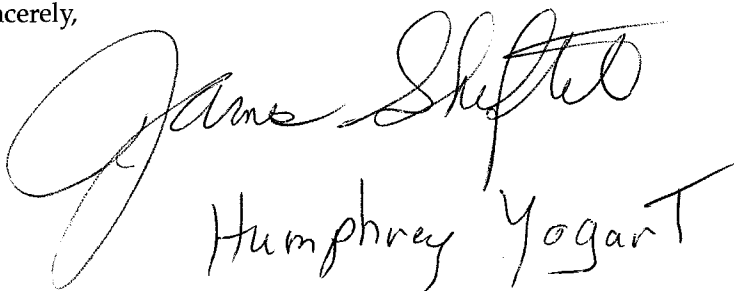 ncerely,
James Sheftel
Humphrey YogarT